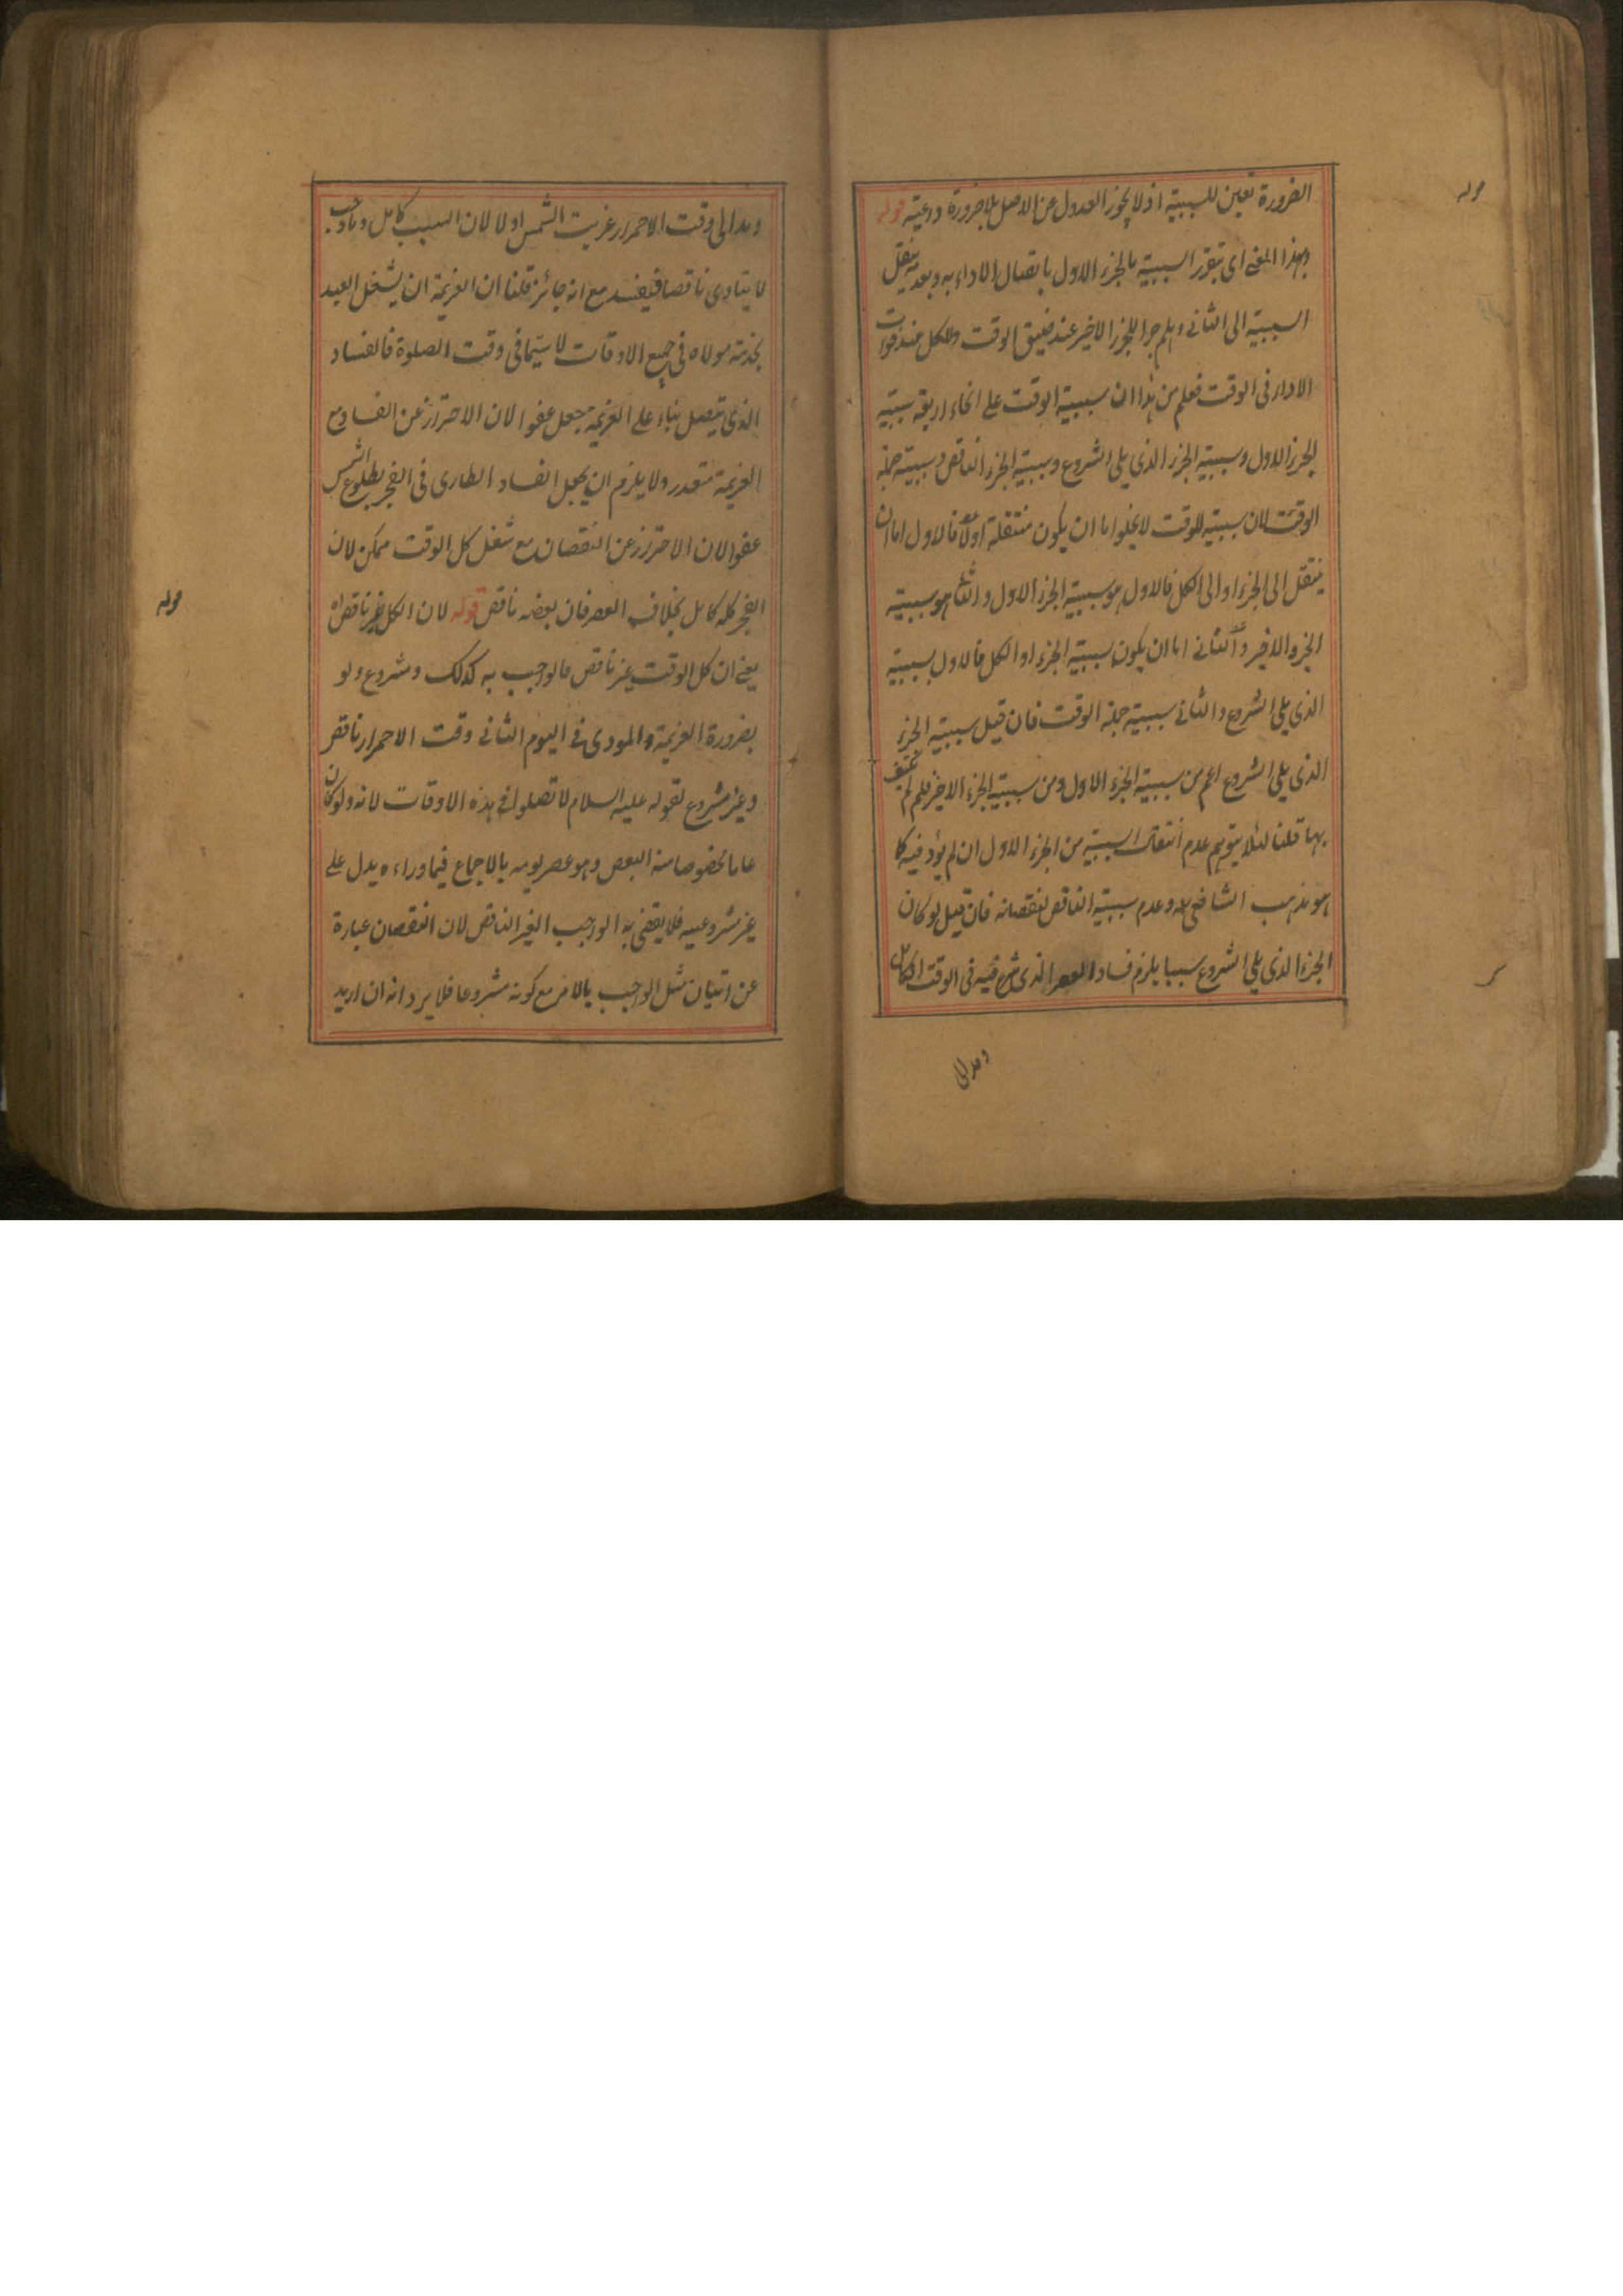 الضرورة تعين للسببية اذ لا يجوز العدول عن الاصل بلا ضرورة داعية قوله
وبهذا المعنى اى تتقرر السببية بالجزء الاول باتصال الاداء به وبعد ينتقل
السببية الى الثانى وهلم جرا للجزء الاخير عند ضيق الوقت وللكل عند فوات
الاداء فى الوقت فعلم من هذا ان سببية الوقت على انحاء اربعة سببية
الجزء الاول وسببية الجزء الذى يلى الشروع وسببية الجزء الناقص وسببية جملة
الوقت لان سببية الوقت لا يخلوا ما ان يكون منتقلة اولا فالاول اما ان
ينتقل الى الجزء او الى الكل فالاول هو سببية الجزء الاول والثانى هو سببية
الجزء الاخير والثانى اما ان يكون سببية الجزء او الكل فالاول سببية
الذى يلى الشروع والثانى سببية جملة الوقت فان قيل سببية الجزء
الذى يلى الشروع اعم من سببية الجزء الاول ومن سببية الجزء الاخير فلم لم يكتف
بها قلنا لئلا يتوهم عدم انتقال السببية من الجزء الاول ان لم يؤد فيه كما
هو مذهب الشافعى وعدم سببية الناقص لنقصانه فان قيل لو كان
الجزء الذى يلى الشروع سببا يلزم فساد العصر الذى شرع فيه فى الوقت الكامل
ومد الى
ومد الى وقت الاحمرار غربت الشمس اولا لان السبب كامل وما وجب
لا يتادى ناقصا فيفسد مع انه جائز قلنا ان العزيمة ان يشتغل العبد
بخدمة مولاه فى جميع الاوقات لا سيما فى وقت الصلوة فالفساد
الذى يتصل بناء على العزيمة جعل عفوا لان الاحتراز عن الفساد مع
العزيمة متعذر ولا يلزم ان يجعل الفساد الطارى فى الفجر بطلوع الشمس
عفوا لان الاحتراز عن النقصان مع شغل كل الوقت ممكن لان
الفجر كله كامل بخلاف العصر فان بعضه ناقص قوله لان الكل غير ناقص اه
يعنى ان كل الوقت غير ناقص فالواجب به كذلك ومشروع ولو
بضرورة العزيمة والمودى فى اليوم الثانى وقت الاحمرار ناقص
وغير مشروع لقوله عليه السلام لا تصلوا فى هذه الاوقات لانه ولو كان
عاما مخصوصا منه البعض وهو عصر يومه بالاجماع فيما وراءه يدل على
غير مشروعيه فلا يقضى به الواجب الغير الناقص لان النقصان عبارة
عن اتيان مثل الواجب بالامر مع كونه مشروعا فلا يرد انه ان اريد